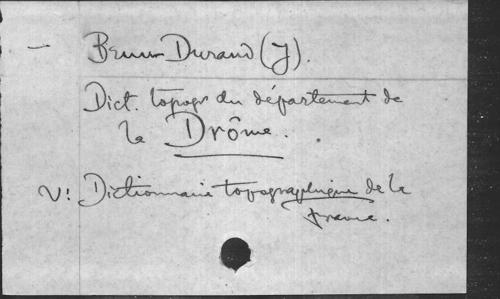 — Brun-Durand (J).
Dict. topogr du département de
la Drôme.
V: Dictionnaire topographique de la
France.